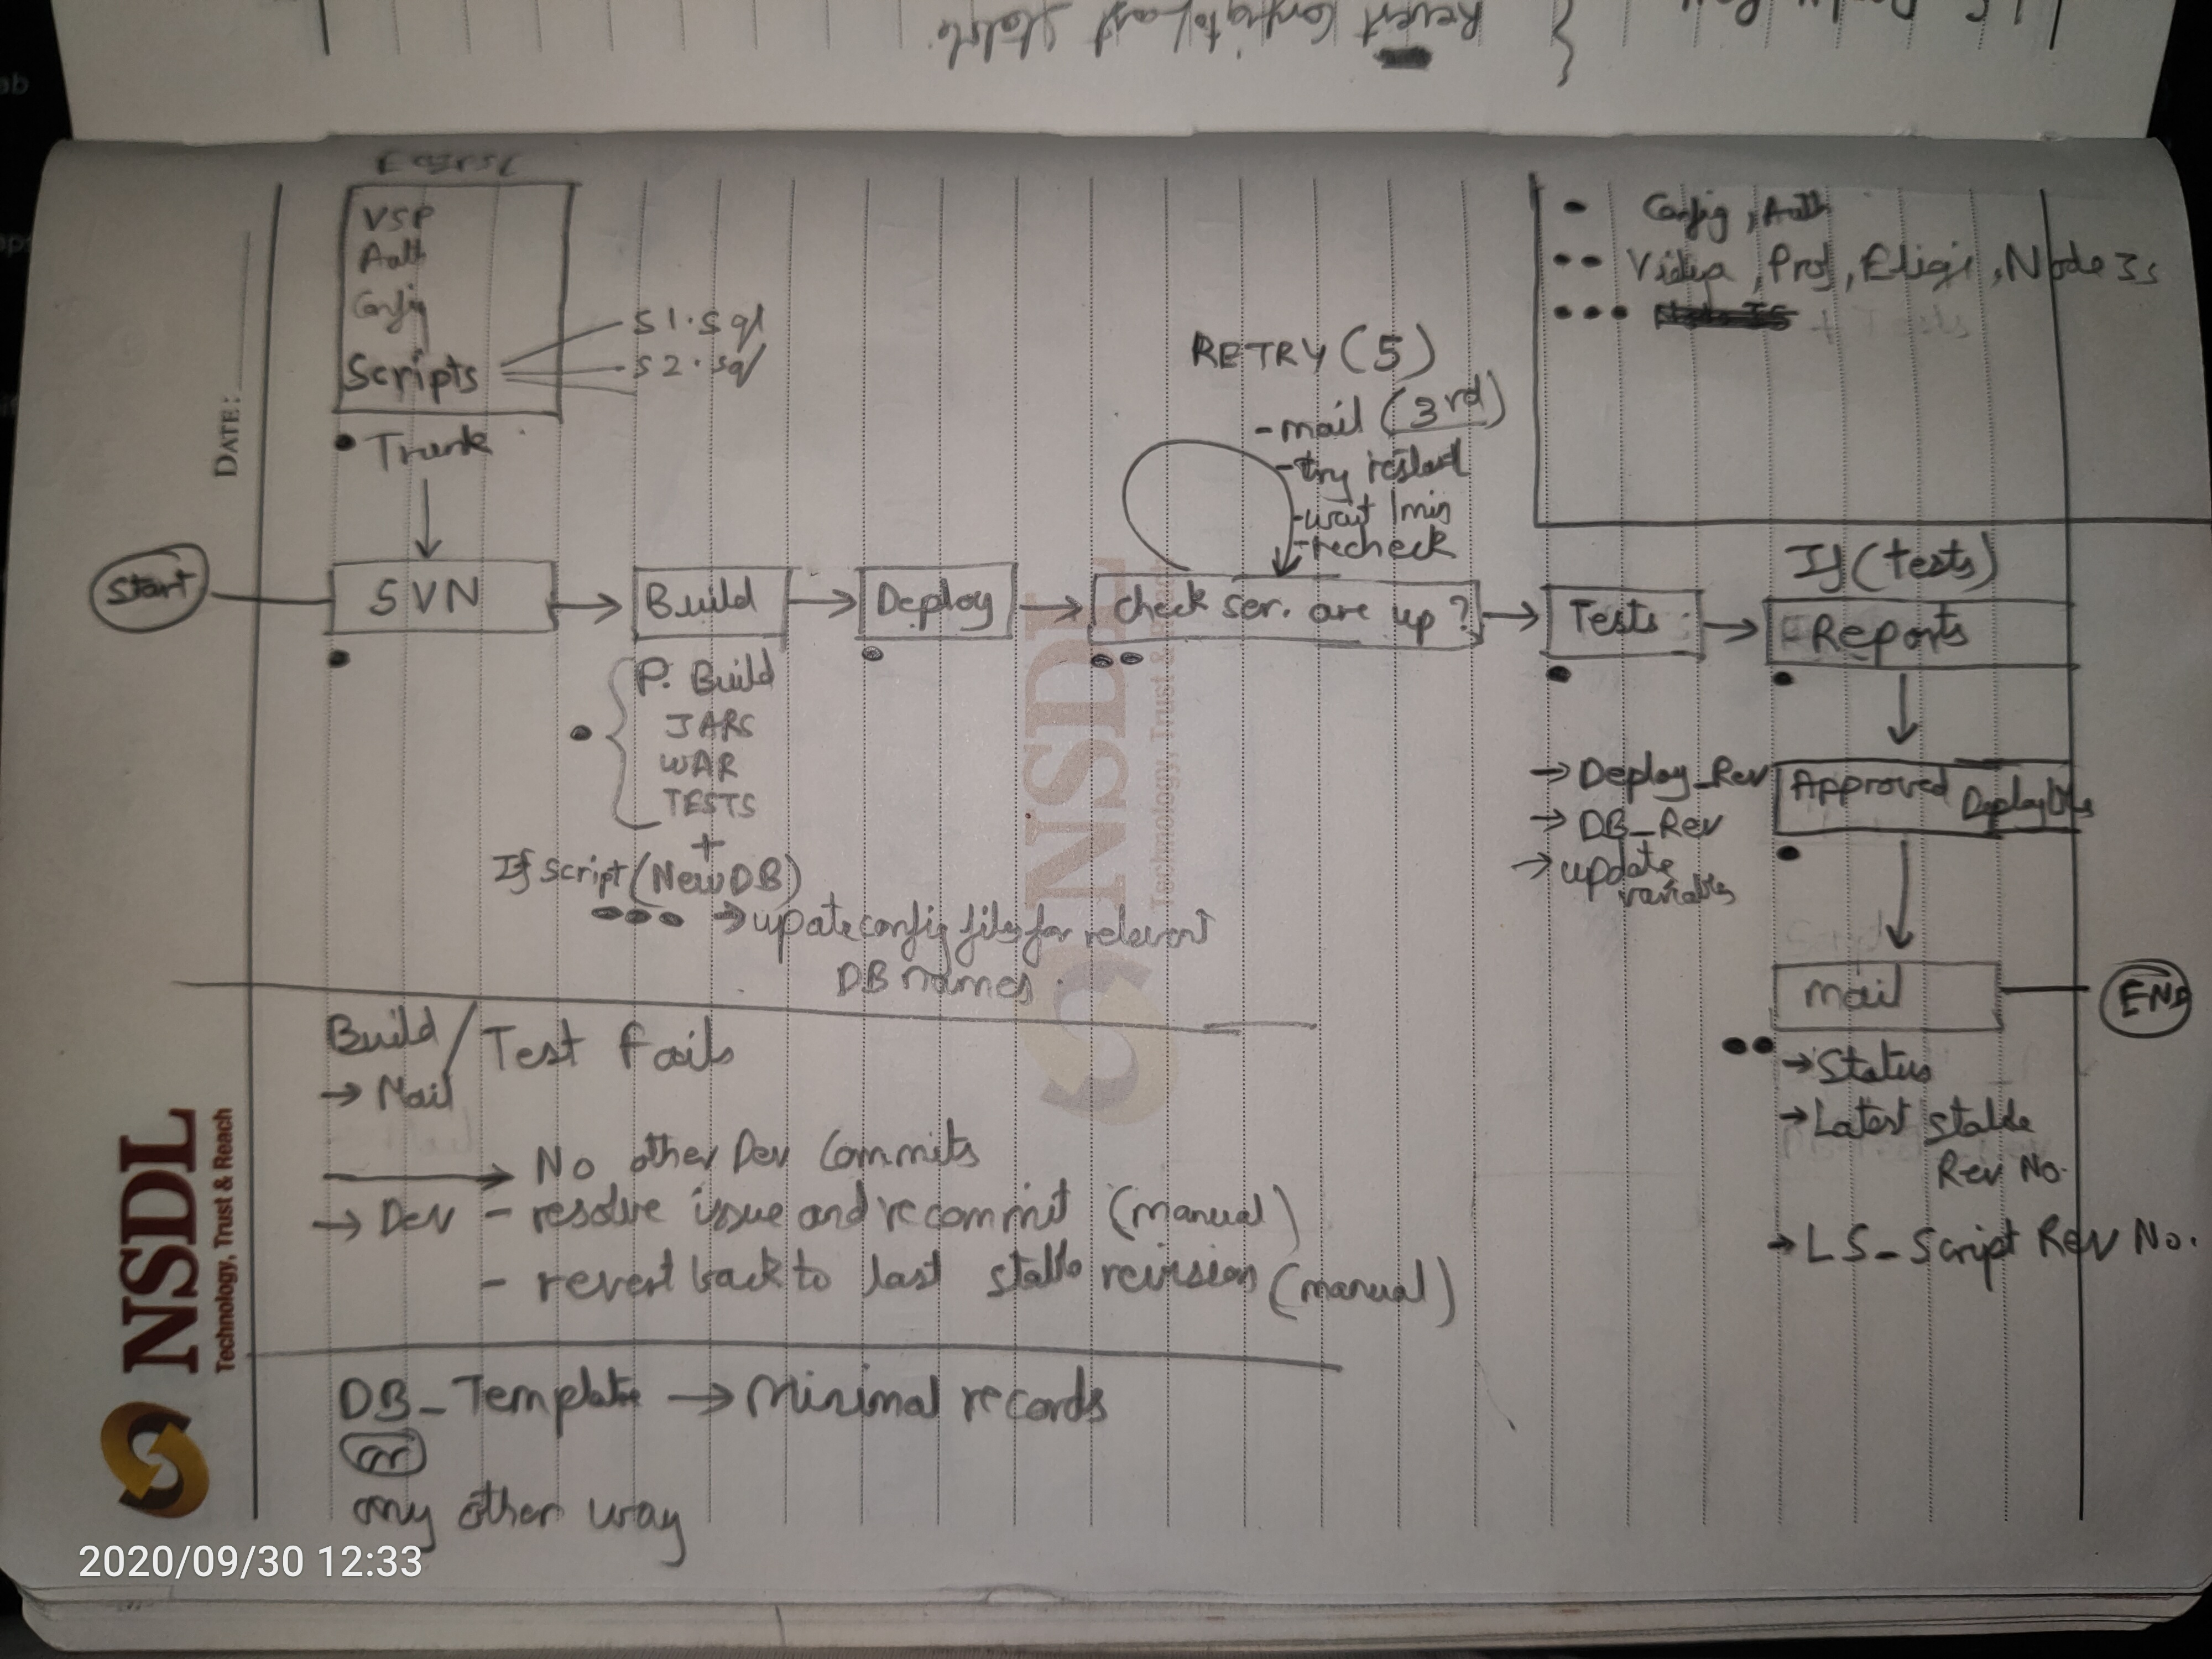 Revert Config to last stable.
VSP
Auth
Config
Scripts
S1.sql
S2.sql
Trunk
Config, Auth
Vidya, Prof, Eligi, Node Js
RETRY (5)
- mail (3rd)
- try restart
- wait 1min
- recheck
DATE:
Start
SVN
Build
Deploy
check ser. are up?
Tests
If (tests)
Reports
P. Build
JARS
WAR
TESTS
+
If Script (New DB)
→ upate config files for relevent
DB names.
→ Deploy_Rev
→ DB_Rev
→ update
variables
Approved
mail
END
→ Status
→ Latest stable
Rev No.
→ LS_Script Rev No.
Build / Test Fails
→ Mail
→ No other Dev Commits
→ Dev - resolve issue and recommit (manual)
- revert back to last stable revision (manual)
DB_Template → Minimal records
or
any other way
NSDL
Technology, Trust & Reach
NSDL
Technology, Trust & Reach
2020/09/30 12:33